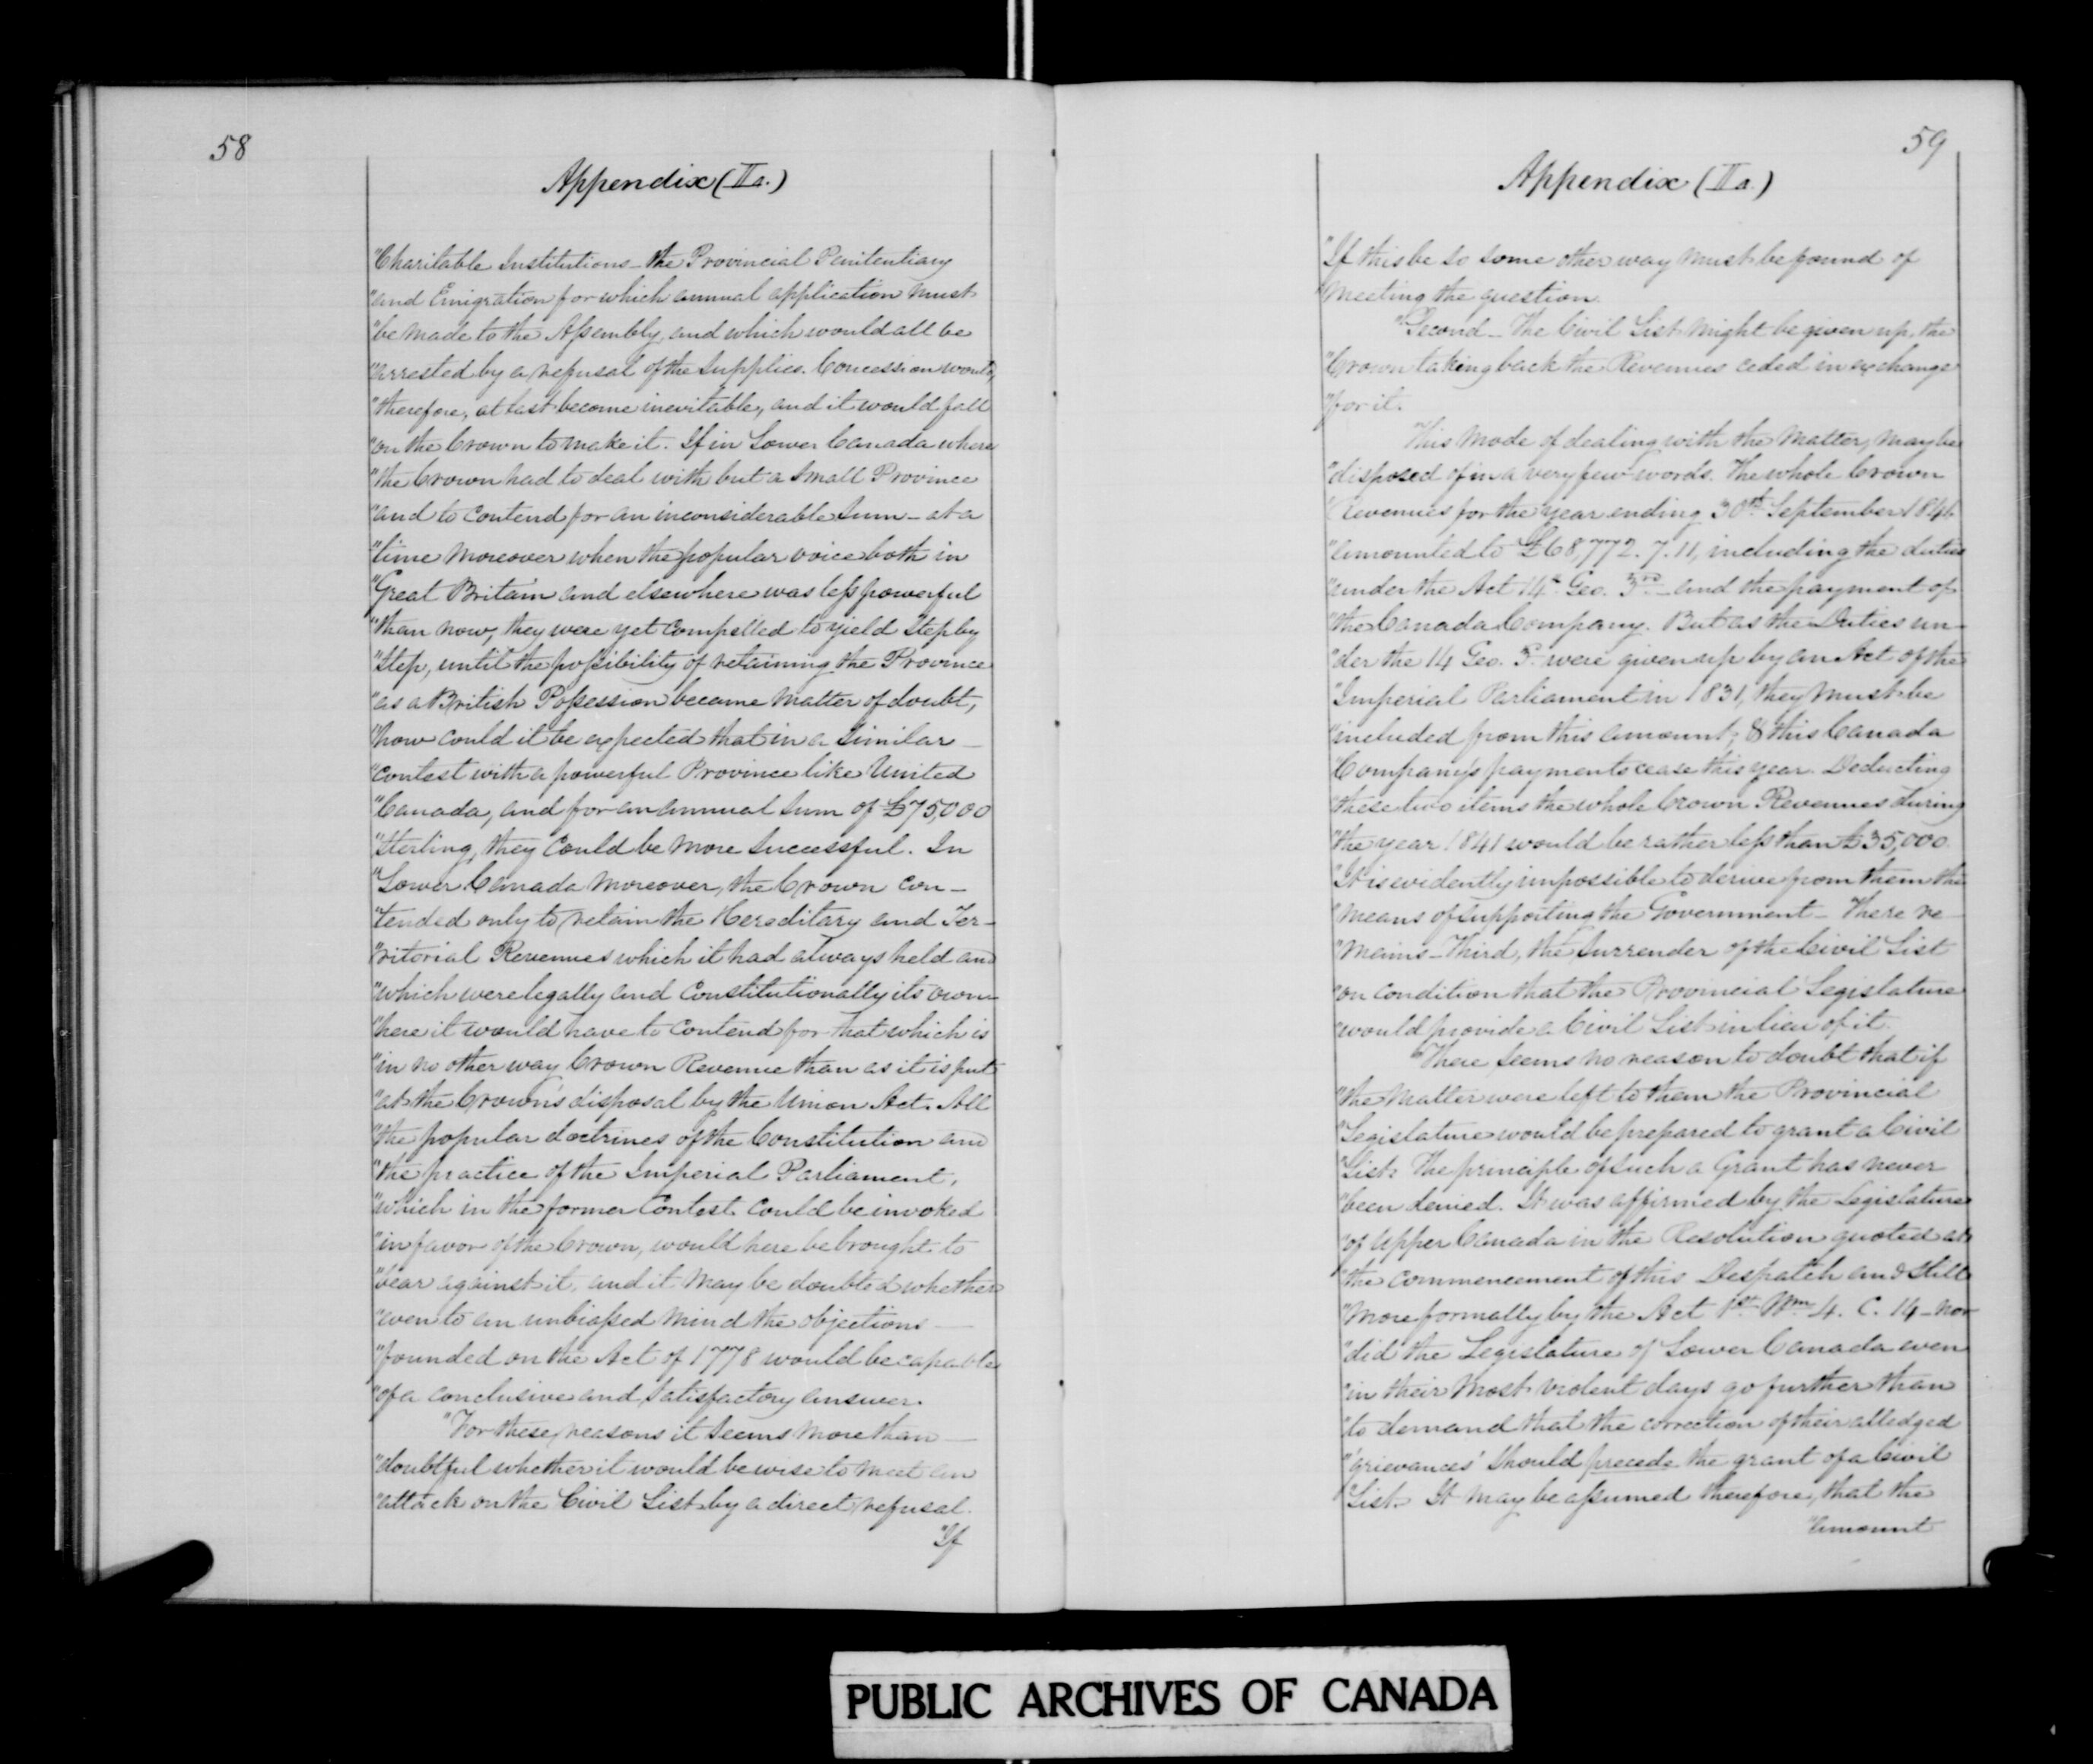 58
Appendix (IIa.)
"Charitable Institutions - the Provincial Penitentiary
"and Emigration for which annual application must
"be made to the Assembly, and which would all be
"arrested by a refusal of the supplies. Concession would,
"therefore, at last become inevitable, and it would fall
"on the Crown to make it. If in Lower Canada where
"the Crown had to deal with but a small Province
"and to contend for an inconsiderable sum - at a
"time moreover when the popular voice both in
"Great Britain and elsewhere was less powerful
"than now, they were yet compelled to yield step by
"step, until the possibility of retaining the Province
"as a British Possession became matter of doubt,
"how could it be expected that in a similar -
"contest with a powerful Province like United
"Canada, and for an annual sum of £75,000
"Sterling, they could be more successful. In
"Lower Canada moreover, the Crown con-
"tended only to retain the Hereditary and Ter-
"ritorial Revenues which it had always held and
"which were legally and Constitutionally its own -
"here it would have to contend for that which is
"in no other way Crown Revenue than as it is put
"at the Crown's disposal by the Union Act. All
"the popular doctrines of the Constitution and
"the practice of the Imperial Parliament,
"which in the former Contest could be invoked
"in favor of the Crown, would here be brought to
"bear against it, and it may be doubted whether
"even to an unbiassed mind the objections -
"founded on the Act of 1778 would be capable
"of a conclusive and satisfactory answer.
"For these reasons it seems more than -
"doubtful whether it would be wise to meet an
"attack on the Civil List by a direct refusal.
"If
59
Appendix (IIa.)
"If this be so some other way must be found of
"meeting the question.
"Second - The Civil List might be given up, the
"Crown taking back the Revenues ceded in exchange
"for it.
"This mode of dealing with the matter, may be
"disposed of in a very few words. The whole Crown
"Revenues for the year ending 30th September 1846
"amounted to £68,772. 7. 11, including the duties
"under the Act 14th Geo. 3rd - and the payment of
"the Canada Company. But as the Duties un-
"der the 14 Geo. 3. were given up by an Act of the
"Imperial Parliament in 1831, they must be
"included from this amount; & this Canada
"Company's payments cease this year. Deducting
"these two items the whole Crown Revenues during
"the year 1841 would be rather less than £35,000.
"It is evidently impossible to derive from them the
"means of supporting the Government - There re-
"mains - Third, the surrender of the Civil List
"on condition that the Provincial Legislature
"would provide a Civil List in lieu of it.
"There seems no reason to doubt that if
"the matter were left to them the Provincial
"Legislature would be prepared to grant a Civil
"List. The principle of such a Grant has never
"been denied. It was affirmed by the Legislature
"of Upper Canada in the Resolution quoted at
"the commencement of this Despatch and still
"more formally by the Act 1st Wm 4. C. 14 - nor
"did the Legislature of Lower Canada even
"in their most violent days go further than
"to demand that the correction of their alledged
"'grievances' should precede the grant of a Civil
"List. It may be assumed therefore, that the
"amount
PUBLIC ARCHIVES OF CANADA